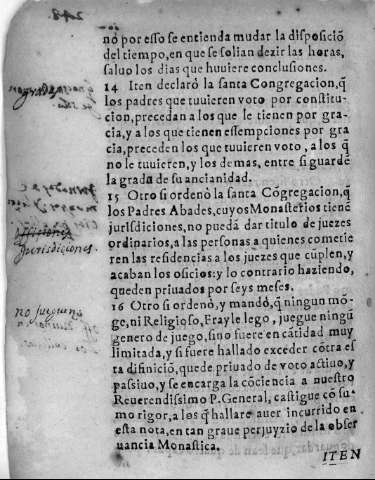 248.
no por esso se entienda mudar la disposiciõ
del tiempo, en que se solian dezir las horas,
saluo los dias que huuiere conclusiones.
14 Iten declarò la santa Congregacion, q̃
los padres que tuuieren voto por constitu-
cion, precedan a los que le tienen por gra-
cia, y a los que tienen essempciones por gra
cia, preceden los que tuuieren voto, a los q̃
no le tuuieren, y los demas, entre si guardẽ
la grada de su ancianidad.
15 Otro si ordenò la santa Cõgregacion, q̃
los Padres Abades, cuyos Monasterios tienẽ
jurisdiciones, no puedã dar titulo de juezes
ordinarios, a las personas a quienes cometie
ren las residencias a los juezes que cũplen, y
acaban los oficios: y lo contrario haziendo,
queden priuados por seys meses.
Jurisdiciones.
16 Otro si ordenò, y mandò, q̃ ningun mõ-
ge, ni Religioso, Frayle lego, juegue ningũ
genero de juego, sino fuere en cãtidad muy
limitada, y si fuere hallado exceder cõtra es
ta difinició, quede priuado de voto actiuo, y
passiuo, y se encarga la cõciencia a nuestro
Reuerendissimo P. General, castigue cõ su-
mo rigor, a los q̃ hallare auer incurrido en
esta nota, en tan graue perjuyzio de la obser
uancia Monastica.
no jueguen
ITEN